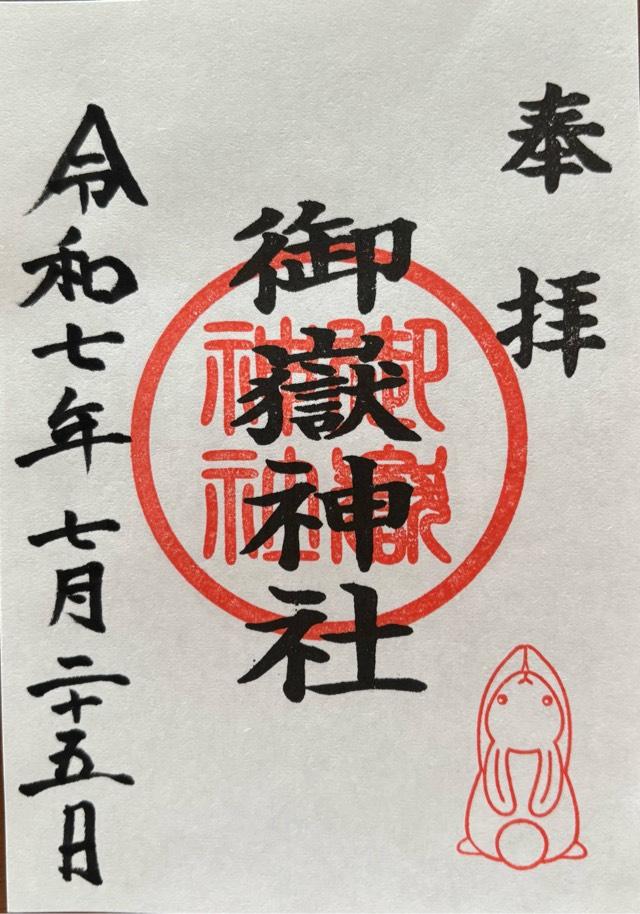 奉拝
御嶽神社
御嶽神社
令和七年七月二十五日